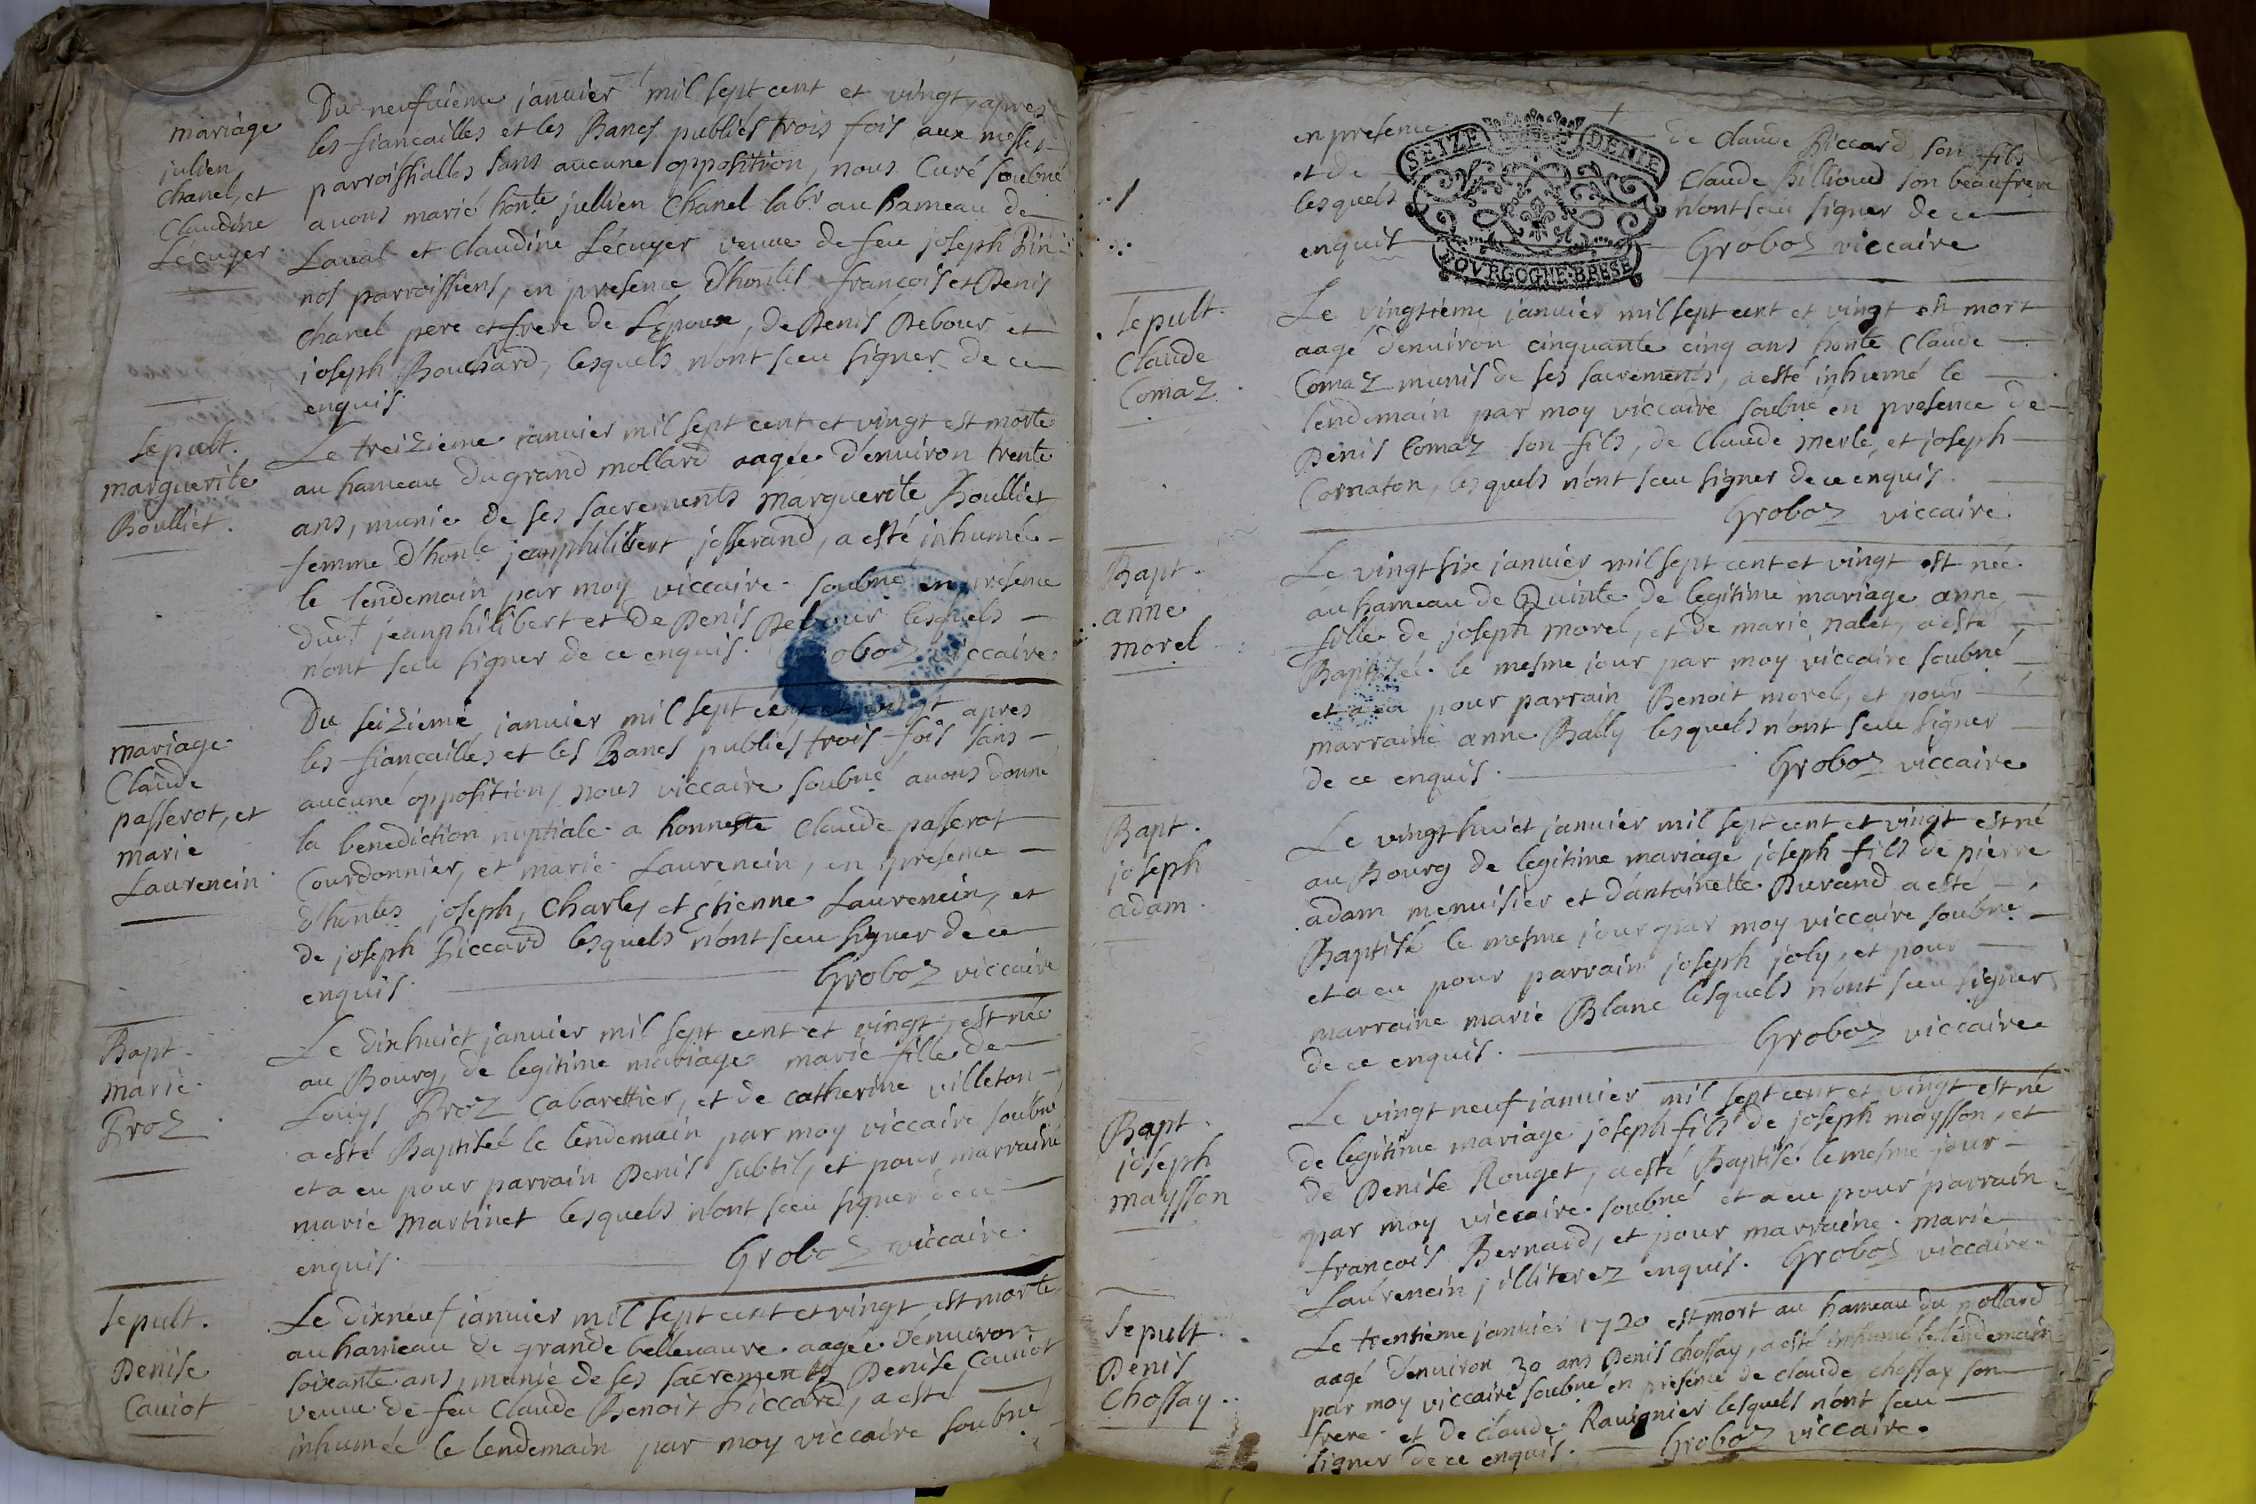 mariage
julien
Chanel, et
Claudine
Lécuyer
Du neufuieme januier mil sept cent et vingt, apres
les fiancailles et les Bancs publiés trois fois aux messes
parroissialles sans aucune opposition, nous Curé soubné
auons marié honte jullien Chanel labr au hameau de
Laual et Claudine Lécuyer veuue de feu joseph
nos parroissiens, en presence d'hontes francois et Denis
Chanel pere et frere de L'Epoux, de Denis Debour et
joseph Bouchard, lesquels n'ont sceu signer de ce
enquis
Sepult.
marguerite
Boulliet.
Le treizieme januier mil sept cent et vingt est morte
au hameau du grand mollard aagée d'enuiron trente
ans, munie de ses sacrements marguerite Boulliet
femme d'honte jeanphilibert josserand, a esté inhumée
le lendemain par moy viccaire soubné en presence
dud jeanphilibert et de Denis Debour lesquels
n'ont sceu signer de ce enquis. Groboz viccaire
mariage
Claude
passerot, et
marie
Laurencin
Du seizieme januier mil sept cent et vingt apres
les fiancailles et les Bancs publiés trois fois sans
aucune opposition, nous viccaire soubné auons donné
la benediction nuptiale a honneste Claude passerot
Courdonnier, et marie Laurencin, en presence
d'hontes joseph, Charles et Etienne Laurencin, et
de joseph Piccard lesquels n'ont sceu signer de ce
enquis. Groboz viccaire
Bapt.
marie
Proz
Le dixhuict januier mil sept cent et vingt, est née
au Bourg, de legitime mariage marie fille de
Louys Proz Cabarettier, et de catherine villeton
a esté Baptisée le lendemain par moy viccaire soubné
et a eu pour parrain Denis subtil, et pour marraine
marie martinet lesquels n'ont sceu signer de ce
enquis. Groboz viccaire.
Sepult.
Denise
Cauiot
Le dixneuf januier mil sept cent et vingt est morte
au hameau de grande belleuaure aagée d'enuiron
soixante ans, munie de ses sacrements Denise Cauiot
veuue de feu Claude Benoit Piccard, a esté
inhumée le lendemain par moy viccaire soubné
en presence de Claude Piccard son fils
et de Claude Billioud son beaufrere
lesquels n'ont sceu signer de ce
enquit Groboz viccaire
SEIZE DENIE
BOVRGOGNE·BRESE
Sepult.
Claude
Comaz
Le vingtieme januier mil sept cent et vingt est mort
aagé d'enuiron cinquante cinq ans honte Claude
Comaz munis de ses sacrements, a esté inhumé le
lendemain par moy viccaire soubné en presence de
Denis Comaz son fils, de Claude merle, et joseph
Cornaton, lesquels n'ont sceu signer de ce enquis.
Groboz viccaire
Bapt.
anne
morel
Le vingt six januier mil sept cent et vingt est née
au hameau de Quinte de legitime mariage anne
fille de joseph morel, et de marie nalet, a esté
Baptisée le mesme jour par moy viccaire soubné
et a eu pour parrain Benoit morel, et pour
marraine anne Bally lesquels n'ont sceu signer
de ce enquis. Groboz viccaire
Bapt.
joseph
adam.
Le vingt huict januier mil sept cent et vingt est né
au Bourg de legitime mariage joseph fils de pierre
adam menuisier et d'antoinette Durand a esté
Baptisé le mesme jour par moy viccaire soubné
et a eu pour parrain joseph joly, et pour
marraine marie Blanc lesquels n'ont sceu signer
de ce enquis. Groboz viccaire
Bapt.
joseph
maysson
Le vingt neuf januier mil sept cent et vingt est né
de legitime mariage joseph fils de joseph maysson, et
de Denise Rouget, a esté Baptisé le mesme jour
par moy viccaire soubné et a eu pour parrain
francois Bernard, et pour marraine marie
Laurencin, illiterez enquis. Groboz viccaire
Sepult.
Denis
Chossay.
Le trentieme januier 1720 est mort au hameau du mollard
aagé d'enuiron 30 ans Denis Chossay, a esté inhumé le lendemain
par moy viccaire soubné en presence de Claude Chossay son
frere et de Claude Rauignier lesquels n'ont sceu
signer de ce enquis. Groboz viccaire.